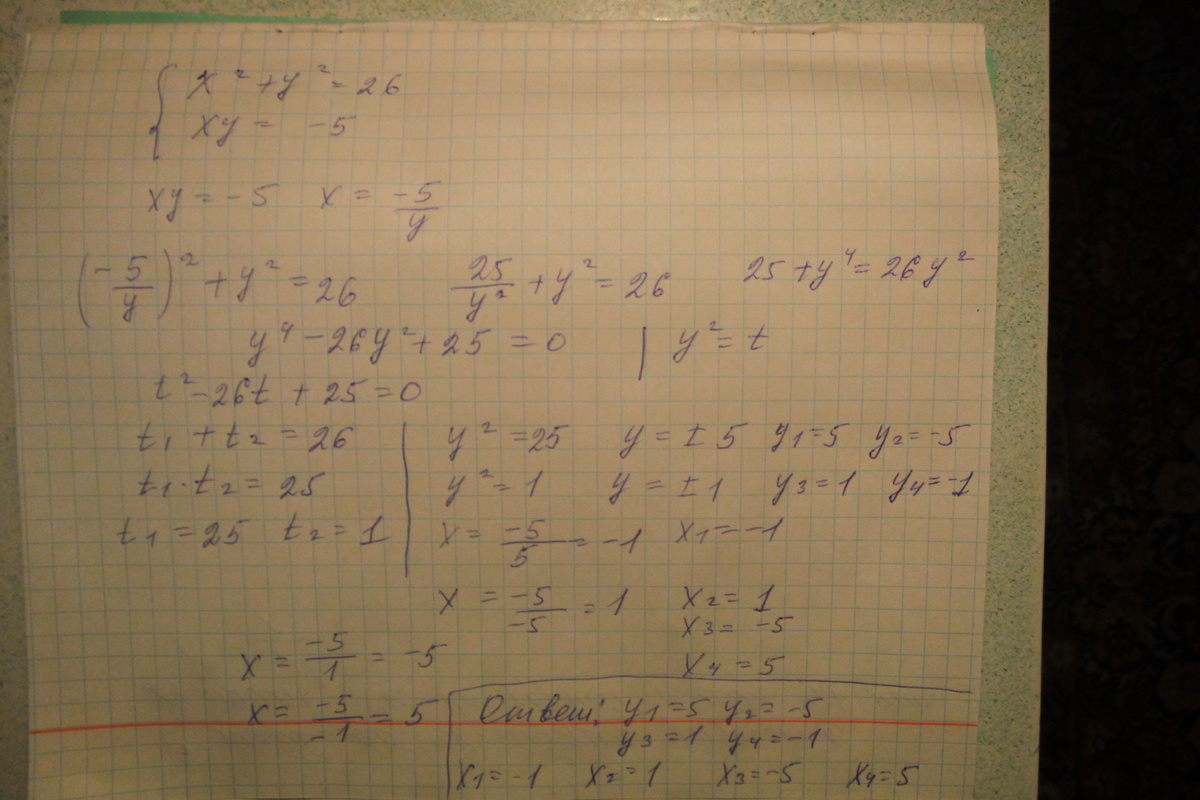 { x² + y² = 26
xy = -5
xy = -5 x = -5/y
(-5/y)² + y² = 26 25/y² + y² = 26 25 + y⁴ = 26y²
y⁴ - 26y² + 25 = 0 | y² = t
t² - 26t + 25 = 0
t₁ + t₂ = 26 | y² = 25 y = ±5 y₁ = 5 y₂ = -5
t₁ · t₂ = 25 | y² = 1 y = ±1 y₃ = 1 y₄ = -1
t₁ = 25 t₂ = 1 | x = -5/5 = -1 x₁ = -1
x = -5/-5 = 1 x₂ = 1
x₃ = -5
x = -5/1 = -5 x₄ = 5
x = -5/-1 = 5 Ответ: y₁ = 5 y₂ = -5
y₃ = 1 y₄ = -1
x₁ = -1 x₂ = 1 x₃ = -5 x₄ = 5